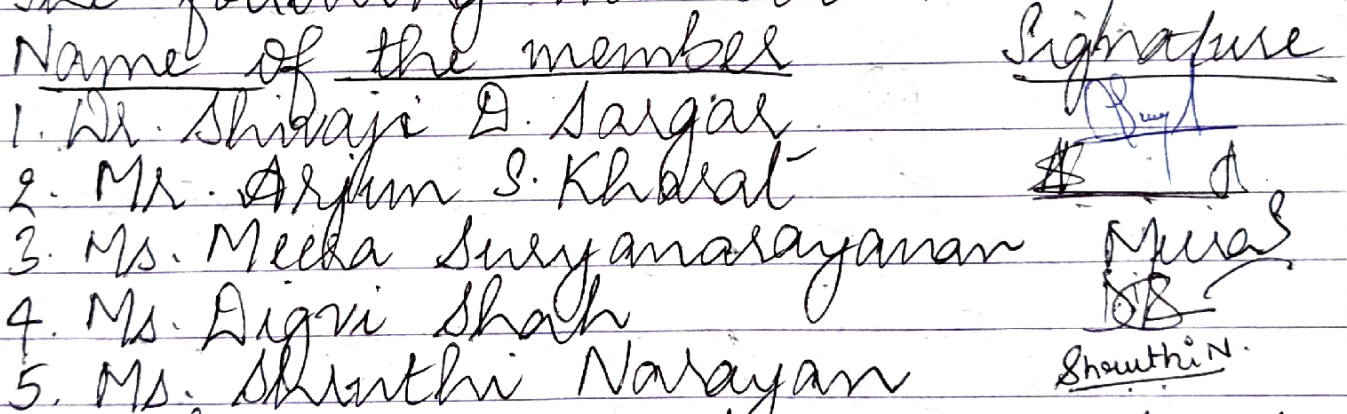 The following
Name of the member Signature
1. Dr. Shivaji D. Sargar
2. Mr. Arjun S. Kharat
3. Ms. Meera Suryanarayanan MeeraS
4. Ms. Digvi Shah DS
5. Ms. Shruthi Narayan Shruthi N.